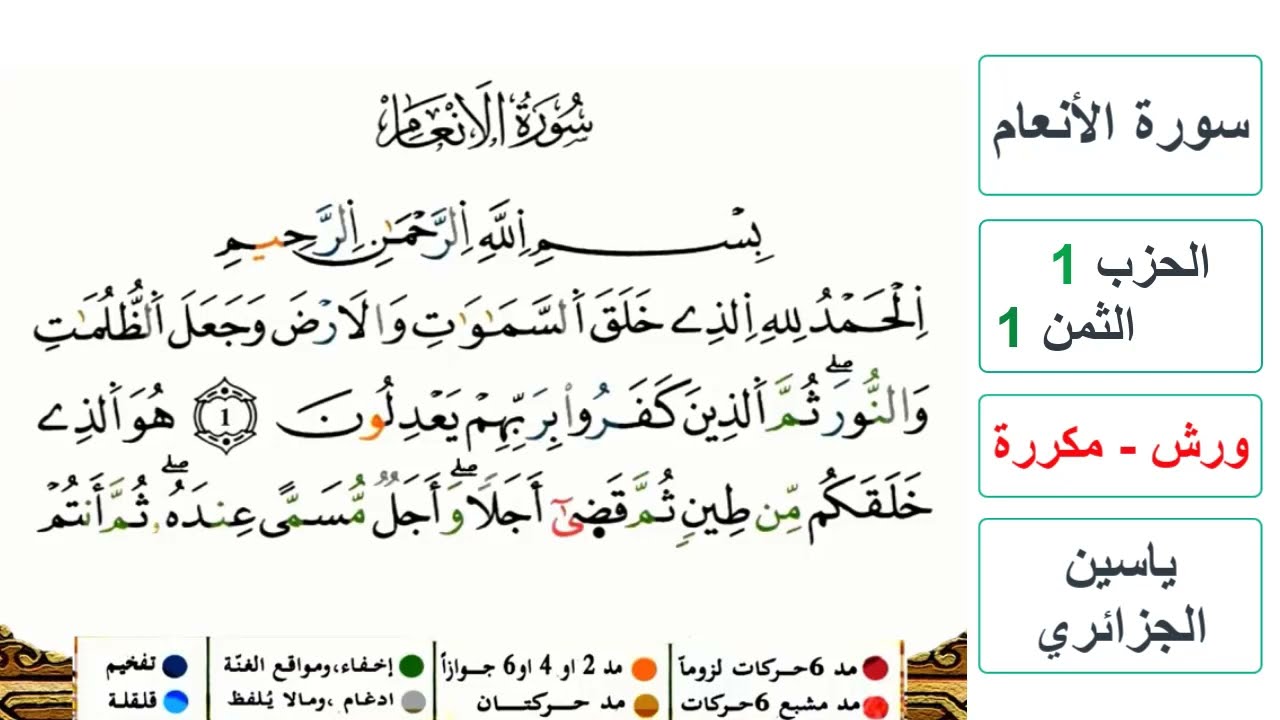 سُورَةُ الَانْعَامِ
بِسْمِ اِللَّهِ اِلرَّحْمَٰنِ اِلرَّحِيمِ
اِلْحَمْدُ لِلهِ اِلذِے خَلَقَ اَلسَّمَٰوَٰتِ وَالَارْضَ وَجَعَلَ اَلظُّلُمَٰتِ
وَالنُّورَۖ ثُمَّ اَلذِينَ كَفَرُواْ بِرَبِّهِمْ يَعْدِلُونَ 1 هُوَ اَلذِے
خَلَقَكُم مِّن طِينٖ ثُمَّ قَضَىٰٓ أَجَلاٗۖ وَأَجَلٞ مُّسَمًّى عِندَهُۥۖ ثُمَّ أَنتُمْ
سورة الأنعام
الحزب 1
الثمن 1
ورش - مكررة
ياسين
الجزائري
مد 6 حركات لزوماً
مد 2 او 4 او 6 جوازاً
إخفاء، ومواقع الغنّة
تفخيم
مد مشبع 6 حركات
مد حركتان
ادغام، ومالا يُلفظ
قلقلة